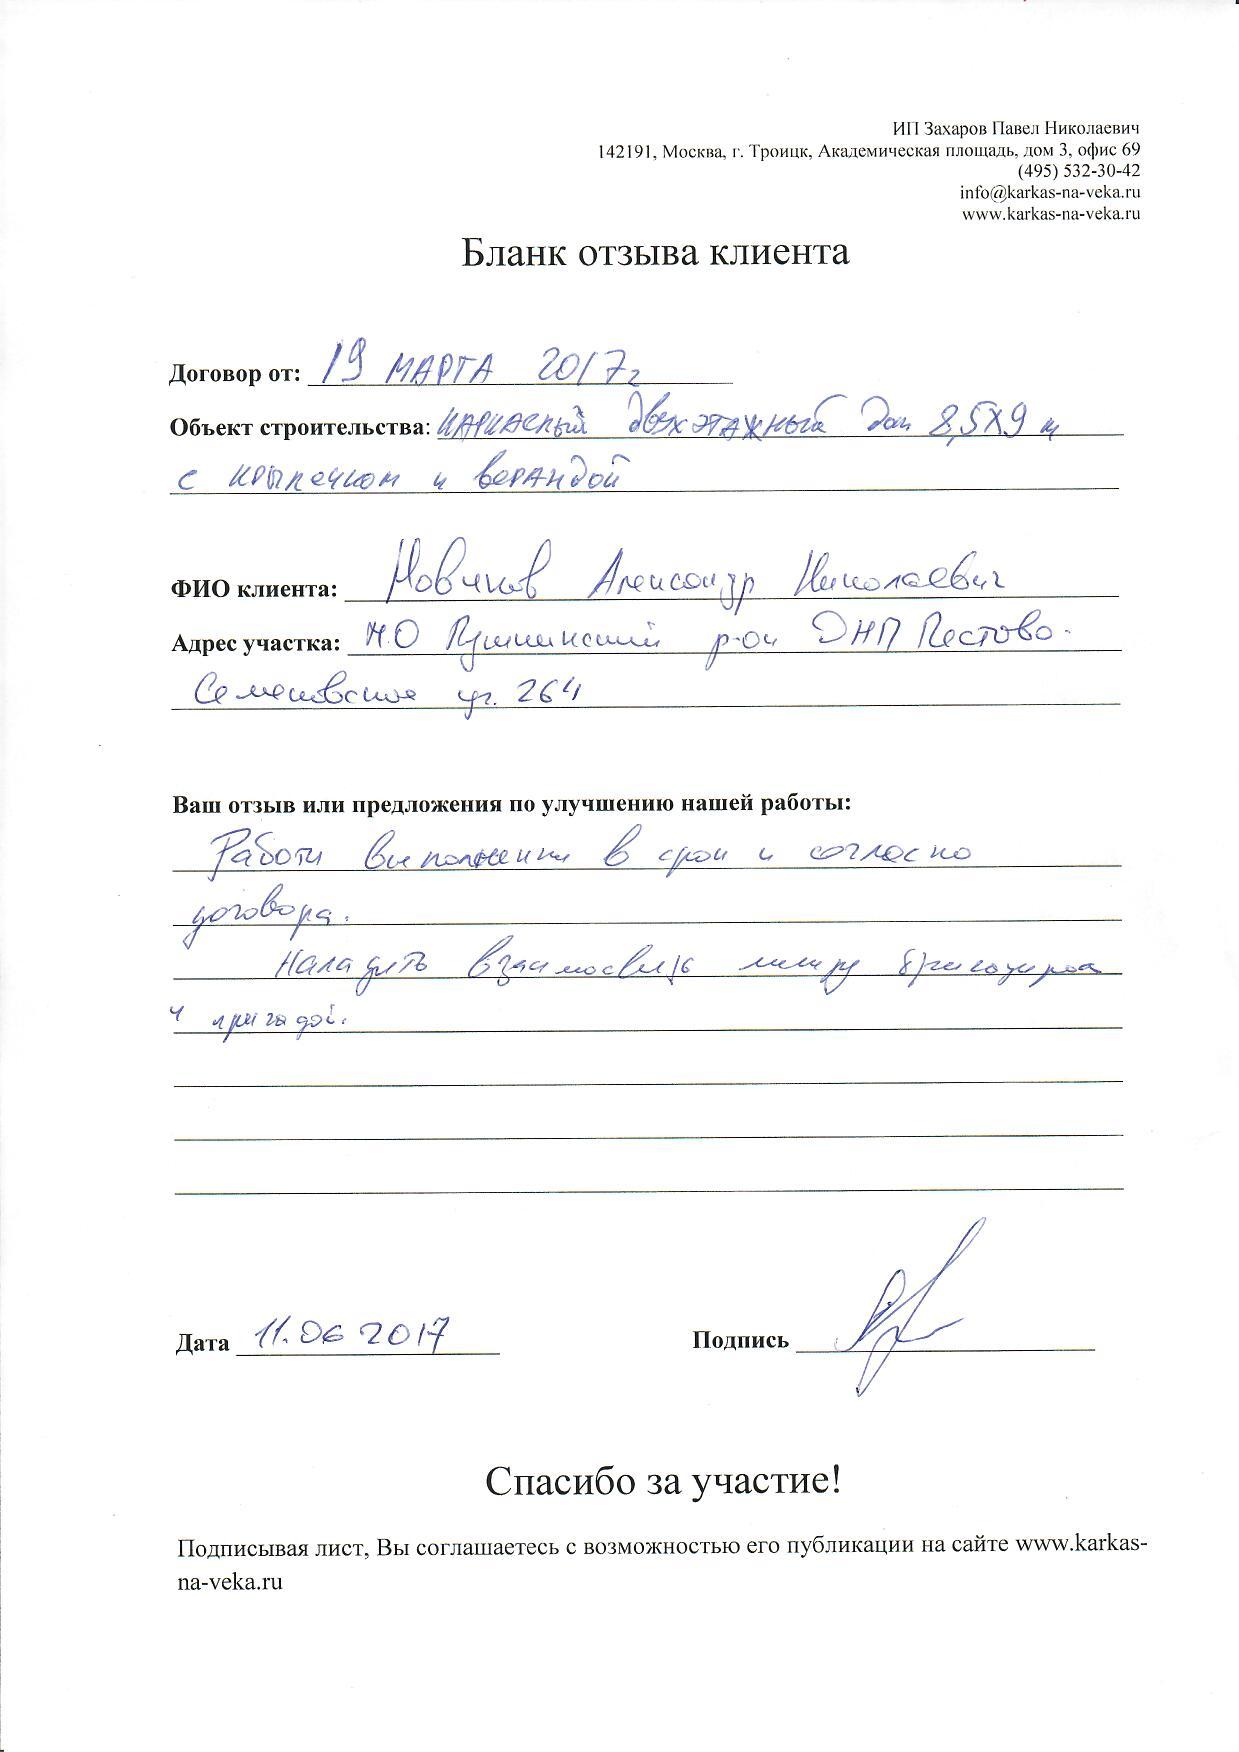 ИП Захаров Павел Николаевич
142191, Москва, г. Троицк, Академическая площадь, дом 3, офис 69
(495) 532-30-42
info@karkas-na-veka.ru
www.karkas-na-veka.ru
Бланк отзыва клиента
Договор от: 19 МАРТА 2017г
Объект строительства: каркасный двухэтажный дом 8,5х9 м
с крылечком и верандой
ФИО клиента: Новиков Александр Николаевич
Адрес участка: МО Пушкинский р-он ДНП Пестово-
Семеновское уч. 264
Ваш отзыв или предложения по улучшению нашей работы:
Работы выполнены в срок и согласно
договора.
Наладить взаимосвязь между
и бригадой.
Дата 11.06 2017 Подпись
Спасибо за участие!
Подписывая лист, Вы соглашаетесь с возможностью его публикации на сайте www.karkas-
na-veka.ru